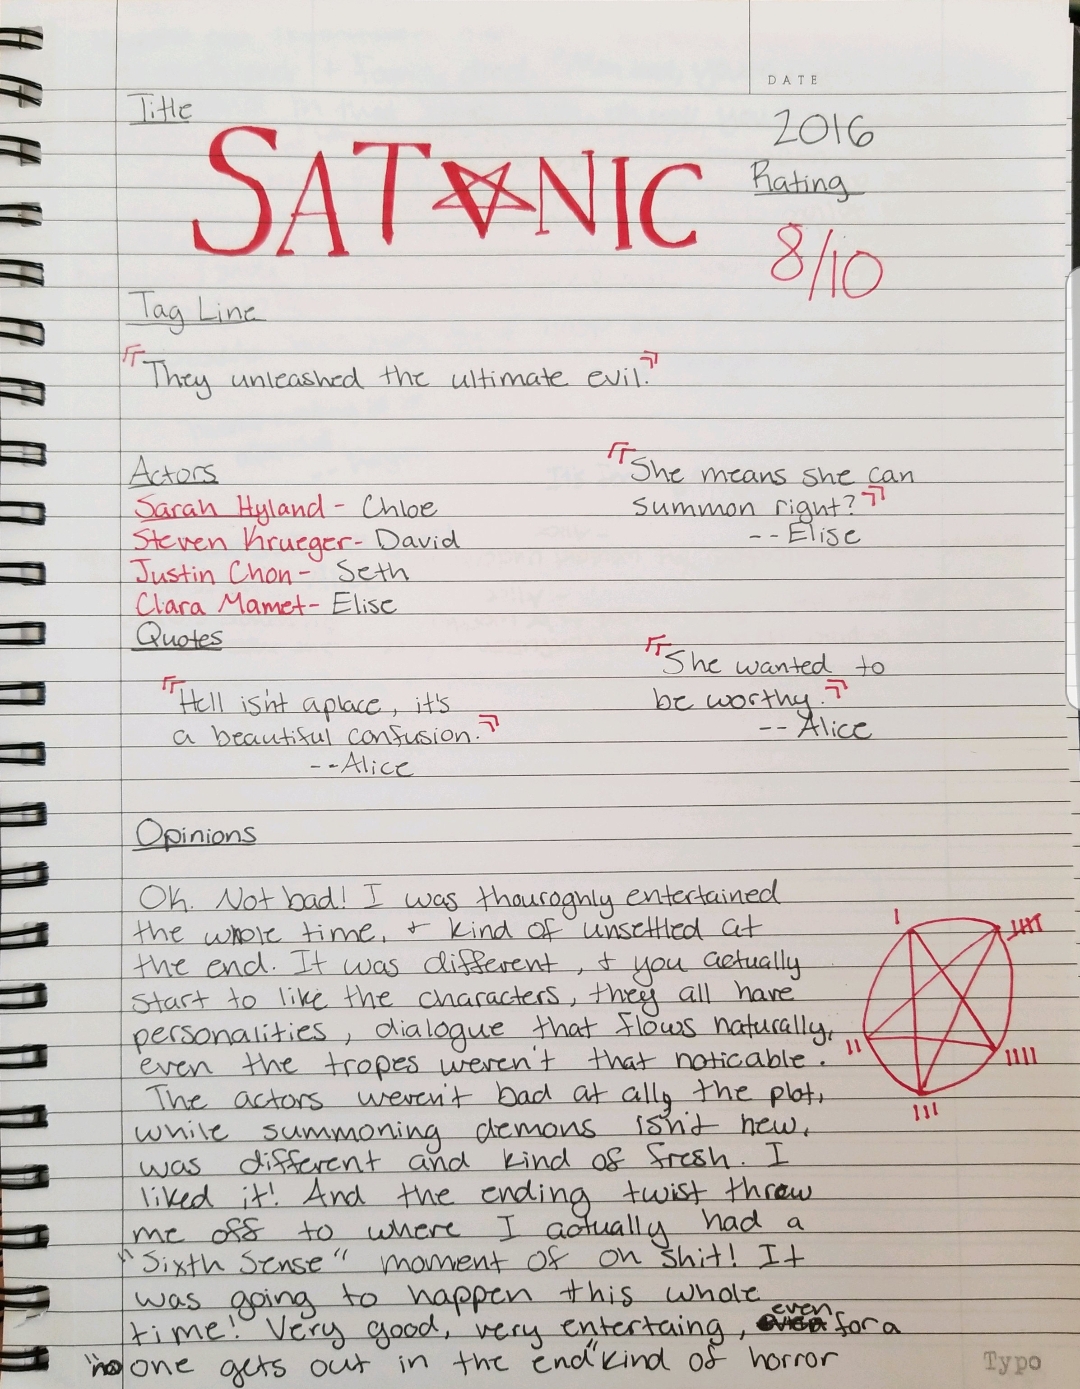 DATE
Title
2016
SATANIC
Rating
8/10
Tag Line
"They unleashed the ultimate evil."
Actors
Sarah Hyland - Chloe
Steven Krueger - David
Justin Chon - Seth
Clara Mamet - Elise
"She means she can
summon right?"
-- Elise
Quotes
"Hell isn't a place, it's
a beautiful confusion."
--Alice
"She wanted to
be worthy."
-- Alice
Opinions
Oh. Not bad! I was thouroghly entertained
the whole time, + kind of unsettled at
the end. It was different, + you actually
start to like the characters, they all have
personalities, dialogue that flows naturally,
even the tropes weren't that noticable.
The actors weren't bad at ally the plot,
while summoning demons isn't new,
was different and kind of fresh. I
liked it! And the ending twist threw
me off to where I actually had a
"Sixth Sense" moment of oh shit! It
was going to happen this whole
time! Very good, very entertaing, even for a
"no one gets out in the end" kind of horror
I
II
III
IIII
IIIII
Typo